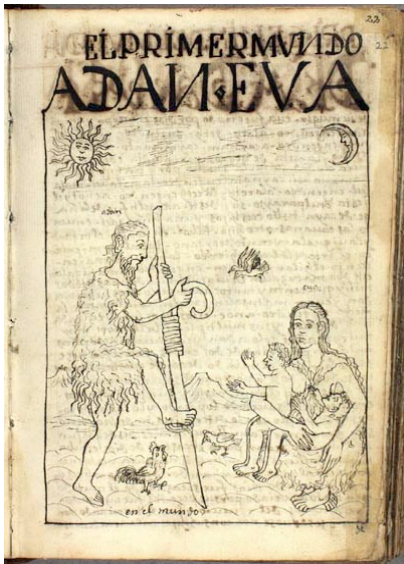 22
EL PRIMER MVNDO
22
ADAN · EVA
adan
eua
en el mundo